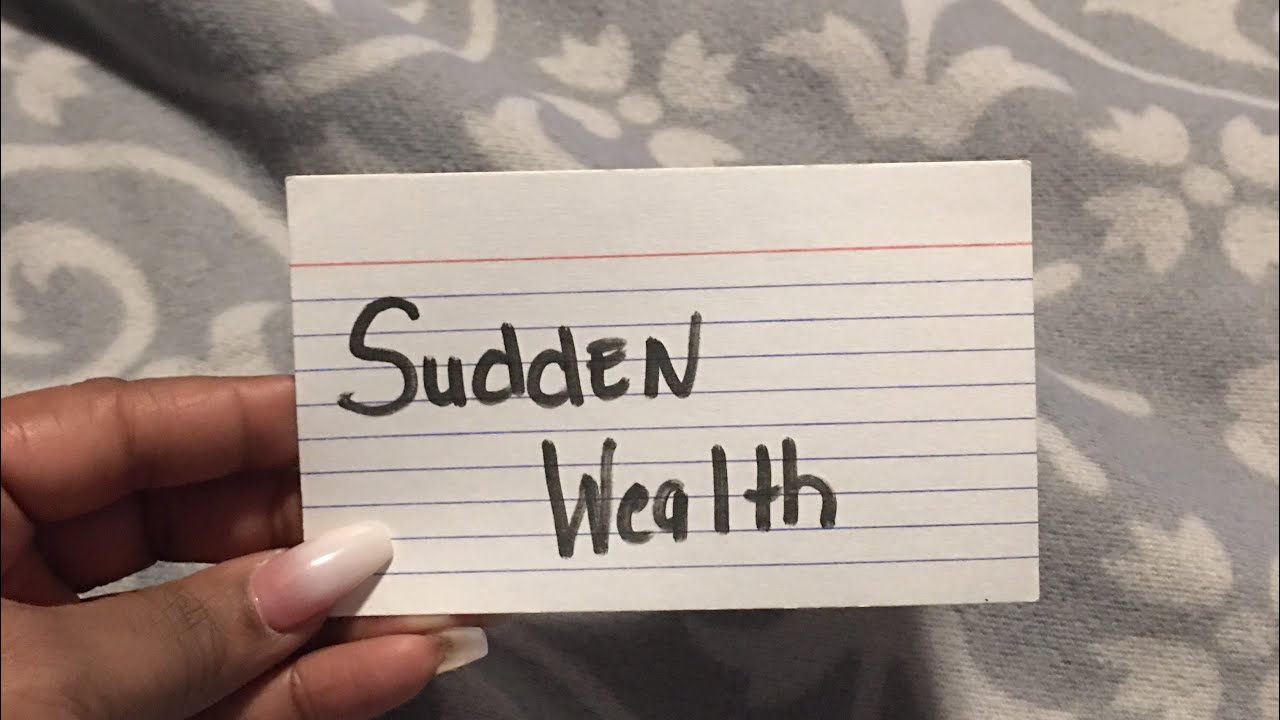 SuddEN
Wealth